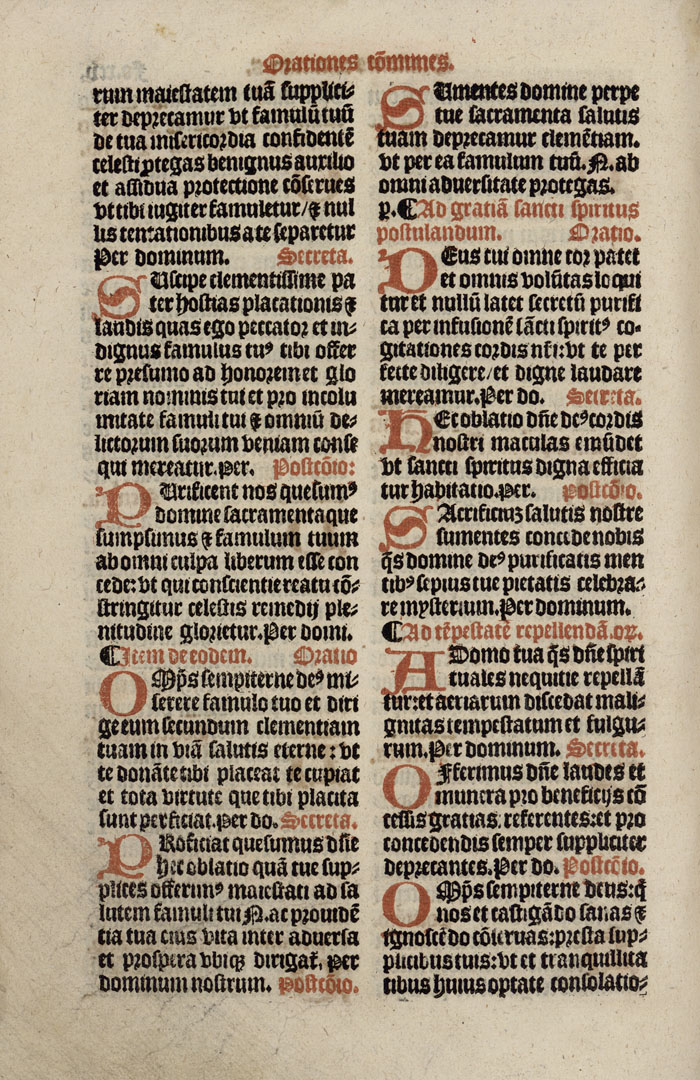 Orationes cōmunes.
rum maiestatem tuā supplici⸗
ter deprecamur vt famulū tuū
de tua misericordia confidentē
celesti ꝓtegas benignus auxilio
et assidua protectione cōserues
vt tibi iugiter famuletur/⁊ nul
lis tentationibus a te separetur
Per dominum. Secreta.
SUscipe clementissime pa
ter hostias placationis ⁊
laudis quas ego peccator et in⸗
dignus famulus tuꝰ tibi offer
re presumo ad honorem et glo
riam nominis tui et pro incolu
mitate famuli tui ⁊ omniū de⸗
lictorum suorum veniam conse
qui mereatur.per. Postcōio:
PUrificent nos quesumꝰ
domine sacramenta que
sumpsimus ⁊ famulum tuum
ab omni culpa liberum esse con
cede: vt qui conscientie reatu cō⸗
stringitur celestis remedij ple⸗
nitudine glorietur.Per domi.
¶Item de eodem. Oratio
OMp̄s sempiterne deꝰ mi⸗
serere famulo tuo et diri
ge eum secundum clementiam
tuam in viā salutis eterne: vt
te donāte tibi placeat te cupiat
et tota virtute que tibi placita
sunt perficiat.per do. Secreta.
PRoficiat quesumus dn̄e
hec oblatio quā tue sup⸗
plices offerimꝰ maiestati ad sa
lutem famuli tui N.ac prouidē
tia tua eius vita inter aduersa
et prospera vbiqꝫ dirigat̄. per
dominum nostrum. Postcōio.
SUmentes domine perpe
tue sacramenta salutis
tuam deprecamur clemētiam.
vt per ea famulum tuū.N.ab
omni aduersitate protegas.
p. ¶Ad gratiā sancti spiritus
postulandum. Oratio.
DEus cui omne cor patet
et omnis volūtas loqui
tur et nullū latet secretū purifi
ca per infusionē sācti spiritꝰ co⸗
gitationes cordis nr̄i: vt te per
fecte diligere/et digne laudare
mereamur.Per do. Secreta.
HEc oblatio dn̄e deꝰ cordis
nostri maculas emūdet
vt sancti spiritus digna efficia
tur habitatio.Per. postcōio.
SAcrificiuꝫ salutis nostre
sumentes concede nobis
q̄s domine deꝰ purificatis men
tibꝰ sepius tue pietatis celebra⸗
re mysterium.Per dominum.
¶Ad tēpestatē repellendā.or̄.
ADomo tua q̄s dn̄e spiri
tuales nequitie repellā
tur:et aeriarum discedat mali⸗
gnitas tempestatum et fulgu⸗
rum.Per dominum. Secreta.
OFferimus dn̄e laudes et
munera pro beneficijs cō
cessis gratias.referentes:et pro
concedendis semper suppliciter
deprecantes.Per do. Postcōio.
OMp̄s sempiterne deus:q̄
nos et castigādo sanas ⁊
ignoscēdo cōseruas:presta sup⸗
plicibus tuis:vt et tranquillita
tibus huius optate consolatio⸗